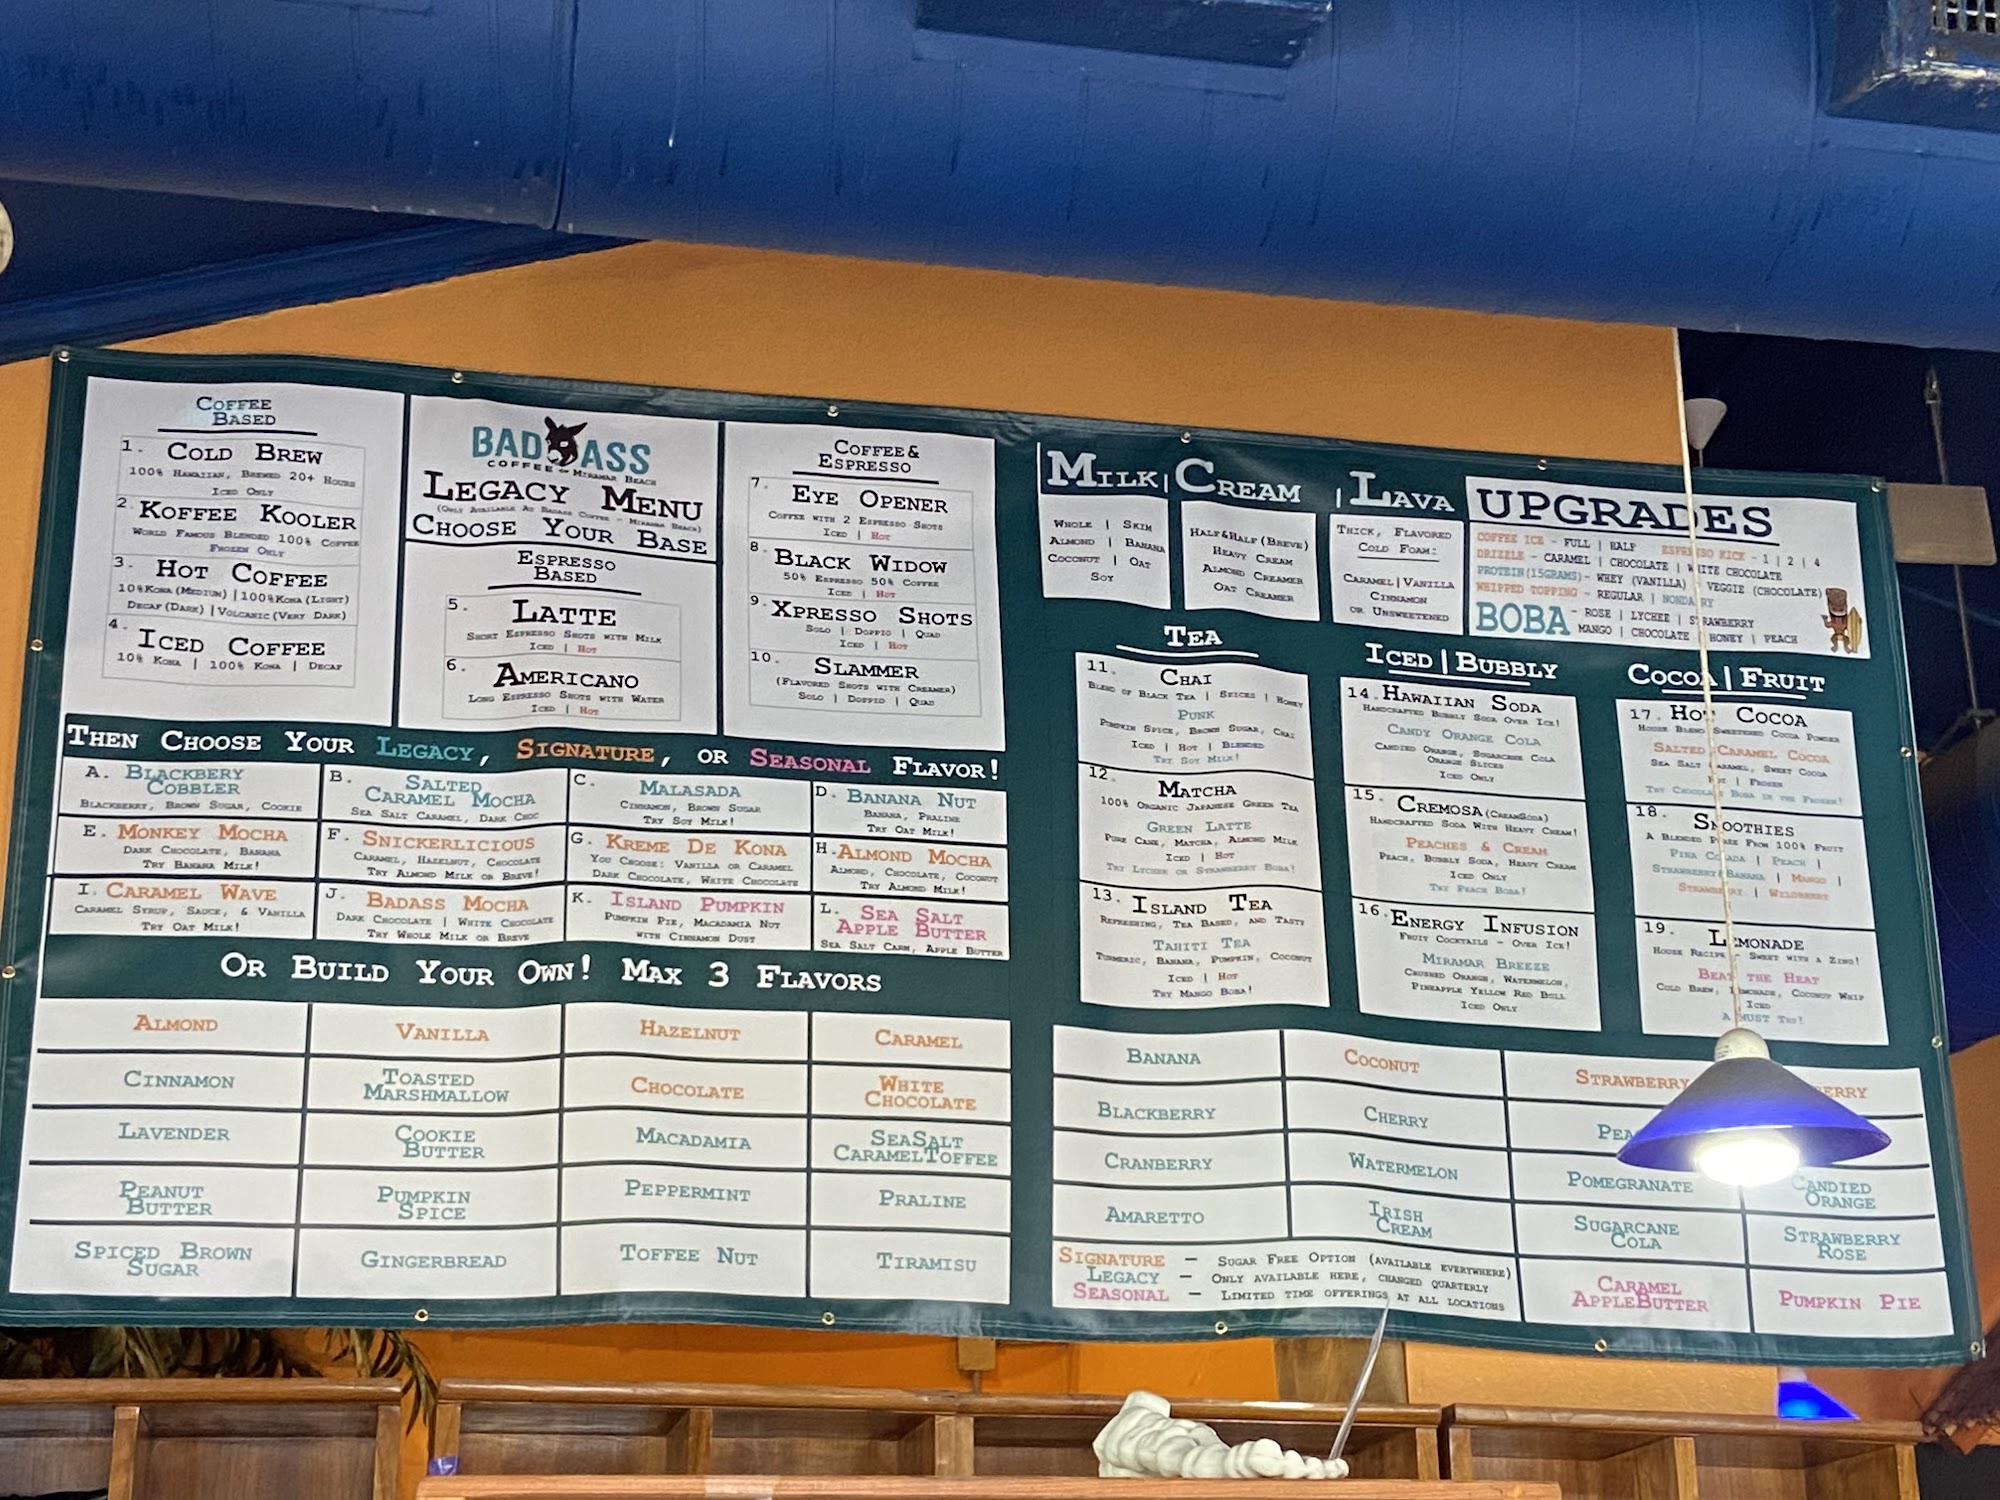 Coffee
Based
1. Cold Brew
100% Hawaiian, Brewed 20+ Hours
Iced Only
2. Koffee Kooler
World Famous Blended 100% Coffee
Frozen Only
3. Hot Coffee
10%Kona(Medium) | 100%Kona(Light)
Decaf(Dark) | Volcanic(Very Dark)
4. Iced Coffee
10% Kona | 100% Kona | Decaf
BAD ASS
COFFEE of Miramar Beach
Legacy Menu
(Only Available At Badass Coffee - Miramar Beach)
Choose Your Base
Espresso
Based
5. Latte
Short Espresso Shots with Milk
Iced | Hot
6. Americano
Long Espresso Shots with Water
Iced | Hot
Coffee &
Espresso
7. Eye Opener
Coffee with 2 Espresso Shots
Iced | Hot
8. Black Widow
50% Espresso 50% Coffee
Iced | Hot
9. Xpresso Shots
Solo | Doppio | Quad
Iced | Hot
10. Slammer
(Flavored Shots with Creamer)
Solo | Doppio | Quad
Then Choose Your Legacy, Signature, or Seasonal Flavor!
A. Blackbery
Cobbler
Blackberry, Brown Sugar, Cookie
B. Salted
Caramel Mocha
Sea Salt Caramel, Dark Choc
C. Malasada
Cinnamon, Brown Sugar
Try Soy Milk!
D. Banana Nut
Banana, Praline
Try Oat Milk!
E. Monkey Mocha
Dark Chocolate, Banana
Try Banana Milk!
F. Snickerlicious
Caramel, Hazelnut, Chocolate
Try Almond Milk or Breve!
G. Kreme De Kona
You Choose: Vanilla or Caramel
Dark Chocolate, White Chocolate
H. Almond Mocha
Almond, Chocolate, Coconut
Try Almond Milk!
I. Caramel Wave
Caramel Syrup, Sauce, & Vanilla
Try Oat Milk!
J. Badass Mocha
Dark Chocolate | White Chocolate
Try Whole Milk or Breve
K. Island Pumpkin
Pumpkin Pie, Macadamia Nut
with Cinnamon Dust
L. Sea Salt
Apple Butter
Sea Salt Carm, Apple Butter
Or Build Your Own! Max 3 Flavors
Almond Vanilla Hazelnut Caramel
Cinnamon
Toasted
Marshmallow
Chocolate
White
Chocolate
Lavender
Cookie
Butter
Macadamia
SeaSalt
CaramelToffee
Peanut
Butter
Pumpkin
Spice
Peppermint
Praline
Spiced Brown
Sugar
Gingerbread
Toffee Nut
Tiramisu
Milk | Cream | Lava
Whole | Skim
Almond | Banana
Coconut | Oat
Soy
Half&Half (Breve)
Heavy Cream
Almond Creamer
Oat Creamer
Thick, Flavored
Cold Foam:
Caramel | Vanilla
Cinnamon
or Unsweetened
UPGRADES
COFFEE ICE - FULL | HALF ESPRESSO KICK - 1 | 2 | 4
DRIZZLE - CARAMEL | CHOCOLATE | WHITE CHOCOLATE
PROTEIN(15GRAMS)- WHEY (VANILLA) | VEGGIE (CHOCOLATE)
WHIPPED TOPPING - REGULAR | NONDAIRY
BOBA - ROSE | LYCHEE | STRAWBERRY
MANGO | CHOCOLATE | HONEY | PEACH
Tea
11. Chai
Blend of Black Tea | Spices | Honey
Punk
Pumpkin Spice, Brown Sugar, Chai
Iced | Hot | Blended
Try Soy Milk!
12. Matcha
100% Organic Japanese Green Tea
Green Latte
Pure Cane, Matcha, Almond Milk
Iced | Hot
Try Lychee or Strawberry Boba!
13. Island Tea
Refreshing, Tea Based, and Tasty
Tahiti Tea
Turmeric, Banana, Pumpkin, Coconut
Iced | Hot
Try Mango Boba!
Iced | Bubbly
14. Hawaiian Soda
Handcrafted Bubbly Soda Over Ice!
Candy Orange Cola
Candied Orange, Sugarcane Cola
Orange Slices
Iced Only
15. Cremosa (CreamSoda)
Handcrafted Soda With Heavy Cream!
Peaches & Cream
Peach, Bubbly Soda, Heavy Cream
Iced Only
Try Peach Boba!
16. Energy Infusion
Fruit Cocktails - Over Ice!
Miramar Breeze
Crushed Orange, Watermelon,
Pineapple Yellow Red Bull
Iced Only
Cocoa | Fruit
17. Hot Cocoa
House Blend Sweetened Cocoa Powder
Salted Caramel Cocoa
Sea Salt Caramel, Sweet Cocoa
Hot | Frozen
Try Chocolate Boba in the Frozen!
18. Smoothies
A Blended Puree From 100% Fruit
Pina Colada | Peach |
Strawberry Banana | Mango |
Strawberry | Wildberry
19. Lemonade
House Recipe - Sweet with a Zing!
Beat the Heat
Cold Brew, Lemonade, Coconut Whip
Iced
A Must Try!
Banana Coconut Strawberry
Blackberry Cherry
Cranberry Watermelon Pomegranate
Candied
Orange
Amaretto
Irish
Cream
Sugarcane
Cola
Strawberry
Rose
Signature - Sugar Free Option (available everywhere)
Legacy - Only available here, changed quarterly
Seasonal - Limited time offerings at all locations
Caramel
AppleButter
Pumpkin Pie